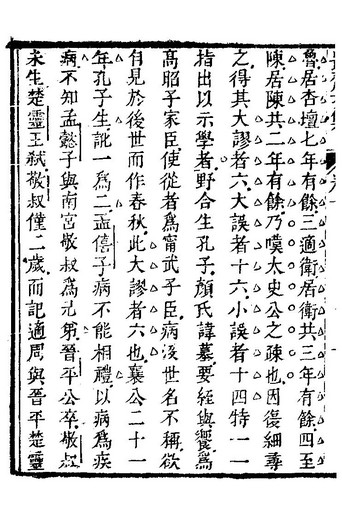 魯居杏壇七年有餘三適衛居衛共三年有餘四至
陳居陳共二年有餘乃嘆太史公之疎也因復細尋
之得其大謬者六大誤者十六小誤者十四特一一
指出以示學者野合生孔子顏氏諱墓要絰與饗爲
高昭子家臣使從者爲甯武子臣病沒世名不稱欲
自見於後世而作春秋此大謬者六也襄公二十一
年孔子生訛一爲二孟僖子病不能相禮以病爲疾
病不知孟懿子與南宮敬叔爲兄弟晉平公卒敬叔
未生楚靈王弑敬叔僅二歲而記適周與晉平楚靈